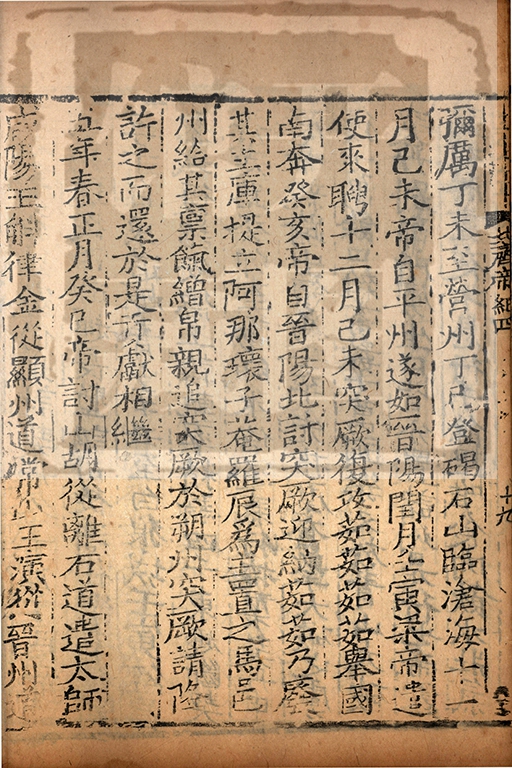 彌厲丁未至營州丁巳登碣石山臨滄海十一
月己未帝自平州遂如晉陽閏月壬寅梁帝遣
使來聘十二月己未突厥復攻茹茹茹茹舉國
南奔癸亥帝自晉陽北討突厥迎納茹茹乃廢
其主庫提立阿那瓌子菴羅辰爲主置之馬邑
州給其禀餼繒帛親追突厥於朔州突厥請降
許之而還於是貢獻相繼
五年春正月癸巳帝討山胡從離石道遣太師
咸陽王斛律金從顯州道常山王演從晉州道
北齊帝紀四
十九